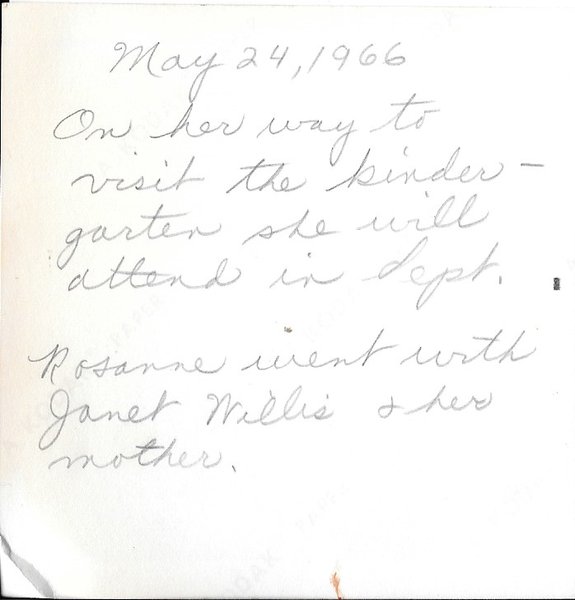 May 24, 1966
On her way to
visit the kinder-
garten she will
attend in Sept.
Rosanne went with
Janet Willis & her
mother.